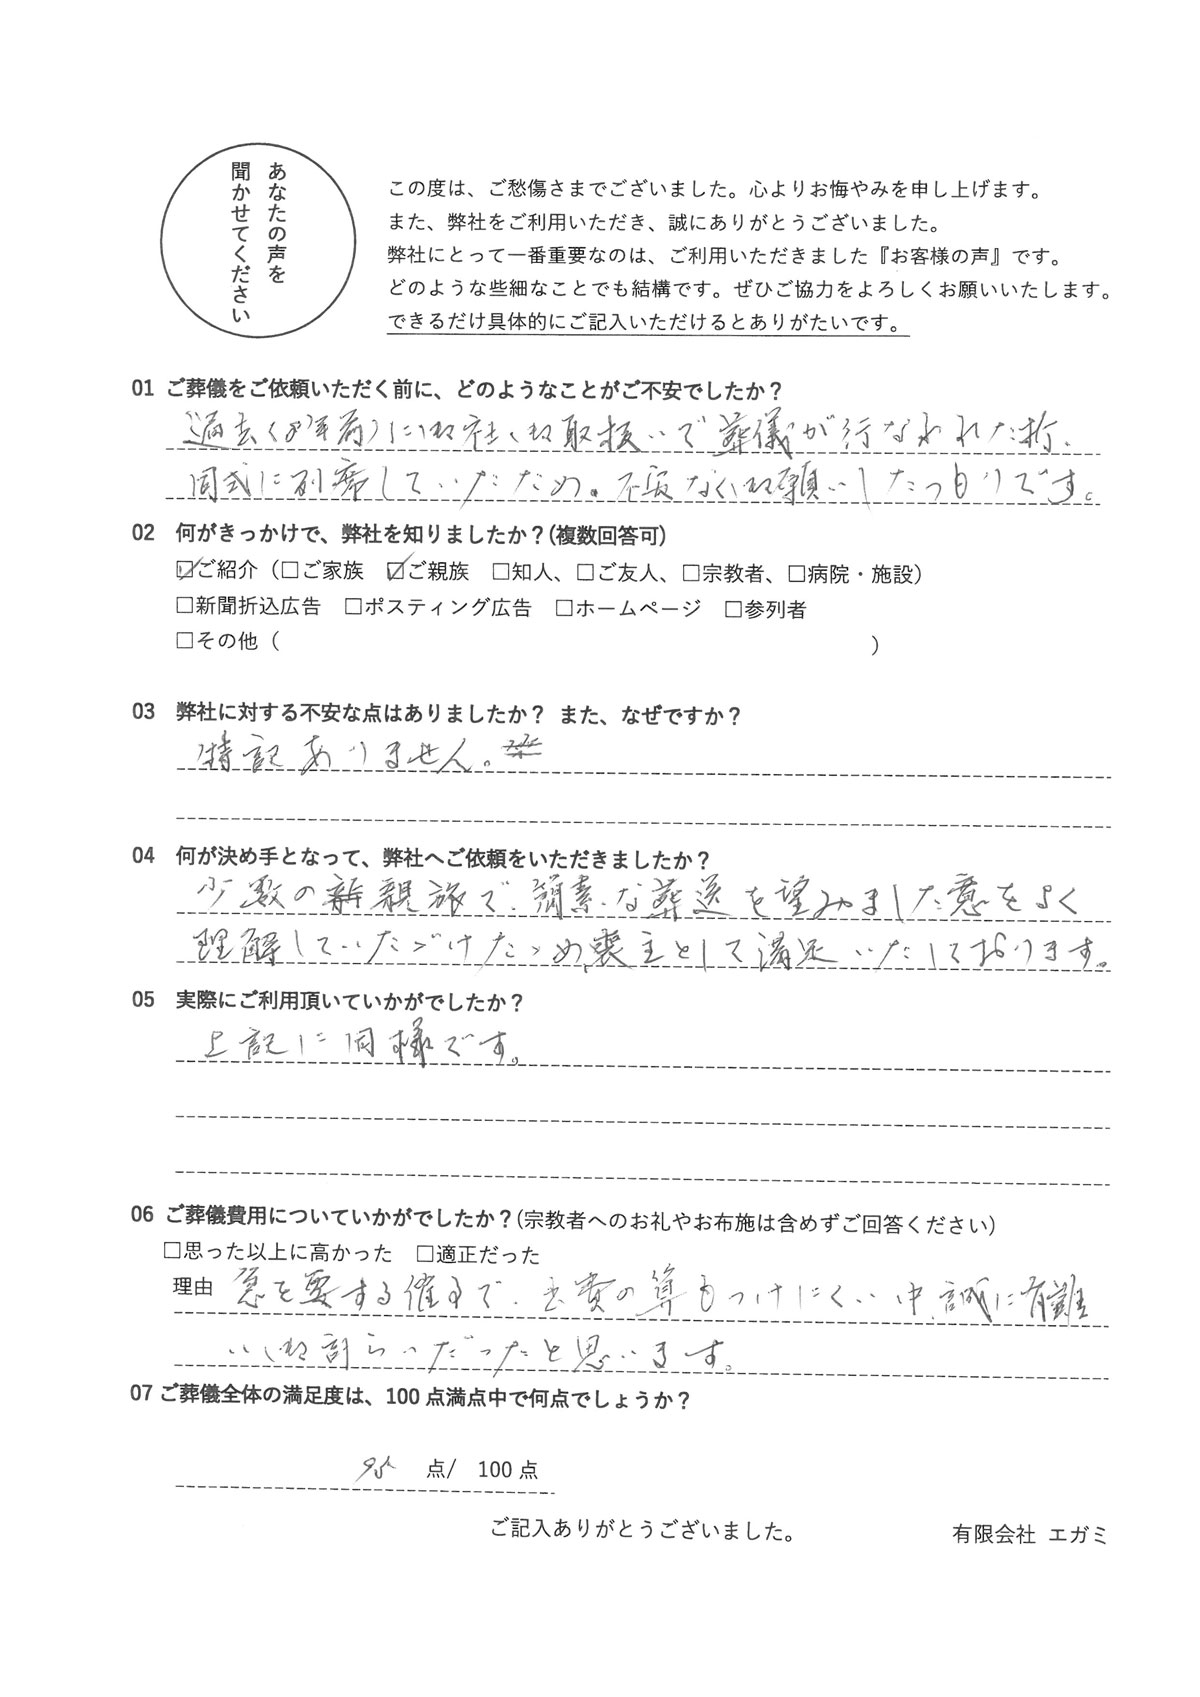 あなたの声を
聞かせてください
この度は、ご愁傷さまでございました。心よりお悔やみを申し上げます。
また、弊社をご利用いただき、誠にありがとうございました。
弊社にとって一番重要なのは、ご利用いただきました『お客様の声』です。
どのような些細なことでも結構です。ぜひご協力をよろしくお願いいたします。
できるだけ具体的にご記入いただけるとありがたいです。
01 ご葬儀をご依頼いただく前に、どのようなことがご不安でしたか？
過去(8年前)に御社御取扱いで葬儀が行なわれた折、
同式に列席していたため。不安なく御願いしたつもりです。
02 何がきっかけで、弊社を知りましたか？(複数回答可)
☑ご紹介（□ご家族 ☑ご親族 □知人、□ご友人、□宗教者、□病院・施設）
□新聞折込広告 □ポスティング広告 □ホームページ □参列者
□その他（ ）
03 弊社に対する不安な点はありましたか？ また、なぜですか？
特記ありません。
04 何が決め手となって、弊社へご依頼をいただきましたか？
少数の親族で、簡素な葬送を望みました意をよく
理解していただけたため、喪主として満足いたしております。
05 実際にご利用頂いていかがでしたか？
上記に同様です。
06 ご葬儀費用についていかがでしたか？(宗教者へのお礼やお布施は含めずご回答ください)
□思った以上に高かった □適正だった
理由 急を要する催事で、出費の算もつけにくい中、誠に有難
い御計らいだったと思います。
07 ご葬儀全体の満足度は、100 点満点中で何点でしょうか？
95 点/ 100 点
ご記入ありがとうございました。
有限会社 エガミ